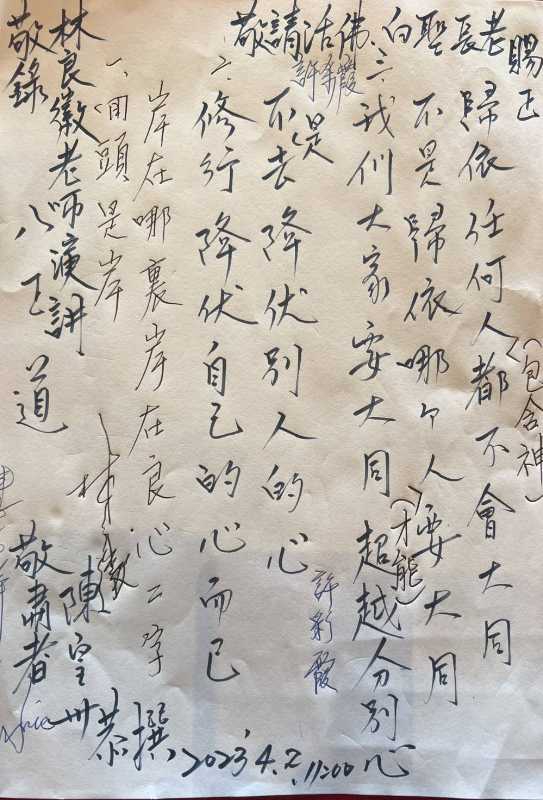 敬請活佛、白聖長老賜正
敬錄
林良徽老師演講八正道
一、回頭是岸
岸在哪裏岸在良心二字
二、修行降伏自己的心而已
不是去降伏別人的心
三、我們大家要大同超越分別心
不是歸依哪个人(才能)要大同
歸依任何人(包含神)都不會大同
許彩霞
許彩霞
敬肅者
陳皇卅
恭撰
2023,4.2,11:00